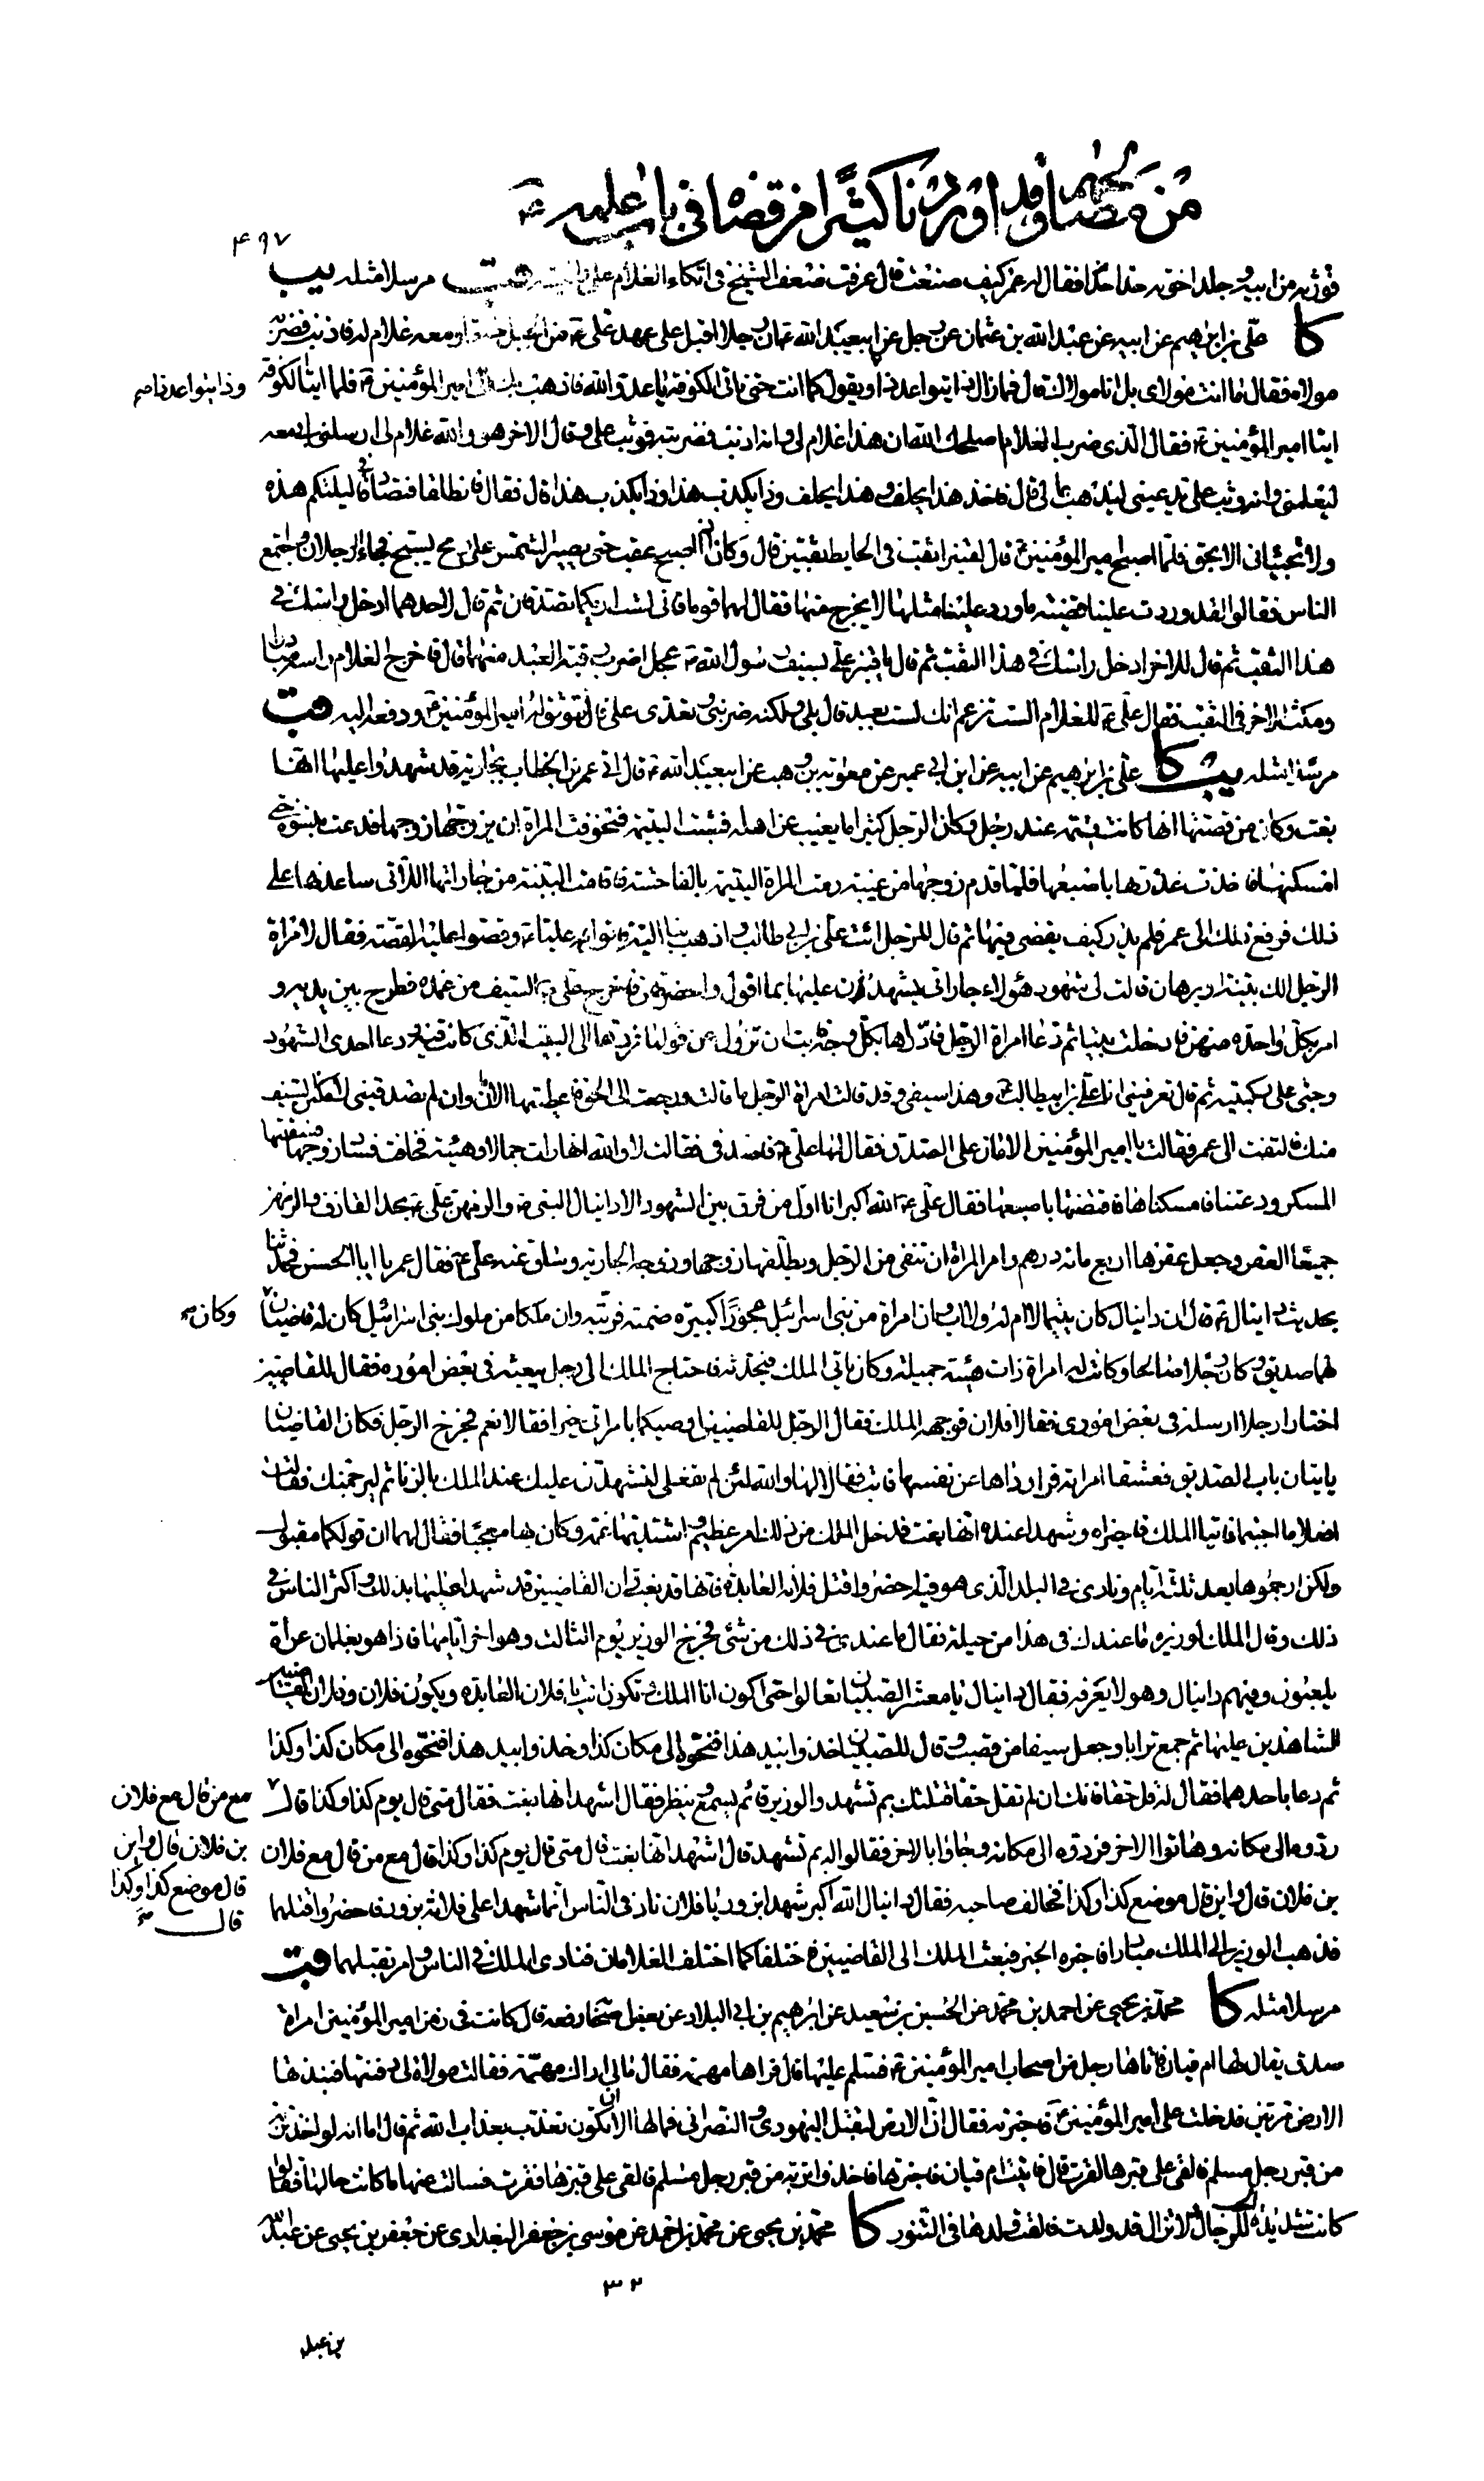 من قضاياه وقد اوردنا كثيرا من قضاياه في باب علمه ع
۴۹۷
فورثه من ابيه وجلد اخوته حدا حدا فقال له عمر كيف صنعت قال عرفت ضعف الشيخ في اتكاء الغلام على مرسلا مثله يب
كا علي بن ابراهيم عن ابيه عن عبد الله بن عثمان عن رجل عن ابيعبد الله ع ان رجلا اقبل على عهد علي ع من الجبل حاجا ومعه غلام له فاذنب فضربه
مولاه فقال ما انت مولاي بل انا مولاك قال فما زال ذا يتواعد ذا ويقول كما انت حتى ناتي الكوفة يا عدو الله فاذهب بك الى امير المؤمنين ع فلما اتيا الكوفة
وذا يتواعد ذا صح
اتيا امير المؤمنين ع فقال الذي ضرب الغلام اصلحك الله ان هذا غلام لي وانه اذنب فضربته فوثب علي وقال الاخر هو والله غلام لي ارسلني ابي معه
ليعلمني وانه وثب علي يدعيني ليذهب بمالي قال فاخذ هذا يحلف وهذا يحلف وذا يكذب هذا وذا يكذب هذا قال فقال فانطلقا فتصادقا في ليلتكم هذه
ولا تجيئاني الا بحق فلما اصبح امير المؤمنين ع قال لقنبر اثقب في الحايط ثقبين قال وكان اذا اصبح عقب حتى يصير الشمس على رمح يسبح فجاء الرجلان واجتمع
الناس فقالوا لقد وردت علينا قضية ما ورد علينا مثلها لا يخرج منها فقال لهما قوما فاني لست اراكما تصدقان ثم قال لاحدهما ادخل راسك في
هذا الثقب ثم قال للاخر ادخل راسك في هذا الثقب ثم قال يا قنبر علي بسيف رسول الله ص عجل اضرب رقبة العبد منهما قال فاخرج الغلام راسه مبادرا
ومكث الاخر في الثقب فقال علي ع للغلام الست تزعم انك لست بعبد قال بلى ولكنه ضربني وتعدى علي قال فتوثق له امير المؤمنين ع ودفعه اليه
مرسلا مثله يب كا علي بن ابراهيم عن ابيه عن ابن ابي عمير عن معوية بن وهب عن ابيعبد الله ع قال اتي عمر بن الخطاب بجارية قد شهدوا عليها انها
بغت وكان من قصتها انها كانت يتيمة عند رجل وكان الرجل كثيرا ما يغيب عن اهله فشبت اليتيمة فتخوفت المراة ان يتزوجها زوجها فدعت بنسوة حتى
امسكنها فاخذت عذرتها باصبعها فلما قدم زوجها من غيبته رمت المراة اليتيمة بالفاحشة فاقامت البينة من جاراتها اللاتي ساعدنها على
ذلك فرفع ذلك الى عمر فلم يدر كيف يقضي فيها ثم قال للرجل ائت علي بن ابي طالب واذهب بنا اليه فاتوا عليا ع وقصوا عليه القصة فقال لامراة
الرجل الك بينة او برهان قالت لي شهود هؤلاء جاراتي يشهدن عليها بما اقول واحضرتهن فاخرج علي ع السيف من غمده فطرح بين يديه و
امر بكل واحدة منهن فادخلت بيتا ثم دعا امراة الرجل فادارها بكل وجه فابت ان تزول عن قولها فردها الى البيت الذي كانت فيه ودعا احدى الشهود
وجثى على ركبتيه ثم قال تعرفيني انا علي بن ابيطالب ع وهذا سيفي وقد قالت امراة الرجل ما قالت ورجعت الى الحق فاعطيتها الامان وان لم تصدقيني لاملأن السيف
منك فالتفتت الى عمر فقالت يا امير المؤمنين الامان على الصدق فقال لها علي ع فاصدقي فقالت لا والله انها رات جمالا وهيئة فخافت فساد زوجها فسقتها
المسكر ودعتنا فامسكناها فافتضتها باصبعها فقال علي ع الله اكبر انا اول من فرق بين الشهود الا دانيال النبي ع والزمهن علي ع بحد القاذف والزمهن
جميعا العقر وجعل عقرها اربع مائة درهم وامر المراة ان تنفى من الرجل ويطلقها زوجها وزوجه الجارية وساق عنه علي ع فقال عمر يا ابا الحسن فحدثنا
بحديث دانيال ع قال ان دانيال كان يتيما لا ام له ولا اب وان امراة من بني اسرائيل عجوزا كبيرة ضمته فربته وان ملكا من ملوك بني اسرائيل كان له قاضيان
وكان صح
لهما صديق وكان رجلا صالحا وكانت له امراة ذات هيئة جميلة وكان ياتي الملك فيحدثه فاحتاج الملك الى رجل يبعثه في بعض اموره فقال للقاضيين
اختارا رجلا ارسله في بعض اموري فقالا فلان فوجهه الملك فقال الرجل للقاضيين اوصيكما بامراتي خيرا فقالا نعم فخرج الرجل فكان القاضيان
ياتيان باب الصديق فعشقا امراته فراوداها عن نفسها فابت فقالا لها والله لئن لم تفعلي لنشهدن عليك عند الملك بالزنا ثم ليرجمنك فقالت
افعلا ما احببتما فاتيا الملك فاخبراه وشهدا عنده انها بغت فدخل الملك من ذلك امر عظيم واشتد بها غمه وكان بها معجبا فقال لهما ان قولكما مقبول
ولكن ارجموها بعد ثلثة ايام ونادى في البلد الذي هو فيه احضروا قتل فلانة العابدة فانها قد بغت وان القاضيين قد شهدا عليها بذلك واكثر الناس في
ذلك وقال الملك لوزيره ما عندك في هذا من حيلة فقال ما عندي في ذلك من شئ فخرج الوزير يوم الثالث وهو اخر ايامها فاذا هو بغلمان عراة
يلعبون وفيهم دانيال وهو لا يعرفه فقال دانيال يا معشر الصبيان تعالوا حتى اكون انا الملك وتكون انت يا فلان العابدة ويكون فلان وفلان القاضيين
الشاهدين عليها ثم جمع ترابا وجعل سيفا من قصب وقال للصبيان خذوا بيد هذا فنحوه الى مكان كذا وخذوا بيد هذا فنحوه الى مكان كذا وكذا
ثم دعا باحدهما فقال له قل حقا فانك ان لم تقل حقا قتلتك بم تشهد والوزير قائم يسمع وينظر فقال اشهد انها بغت فقال متى قال يوم كذا وكذا قال
مع من قال مع فلان
بن فلان قال واين
قال موضع كذا وكذا
قال صح
ردوه الى مكانه وهاتوا الاخر فردوه الى مكانه وجاؤا بالاخر فقالوا له بم تشهد قال اشهد انها بغت قال متى قال يوم كذا وكذا قال مع من قال مع فلان
بن فلان قال واين قال موضع كذا وكذا فخالف صاحبه فقال دانيال الله اكبر شهدا بزور يا فلان ناد في الناس انما شهدا على فلانة بزور فاحضروا قتلهما
فذهب الوزير الى الملك مبادرا فاخبره الخبر فبعث الملك الى القاضيين فاختلفا كما اختلف الغلامان فنادى الملك في الناس وامر بقتلهما
مرسلا مثله كا محمد بن يحيى عن احمد بن محمد عن الحسين بن سعيد عن ابرهيم بن ابي البلاد عن بعض اصحابه رفعه قال كانت في زمن امير المؤمنين امراة
صدق يقال لها ام قيان فاتاها رجل من اصحاب امير المؤمنين ع فسلم عليها قال فراها مهتمة فقال مالي اراك مهتمة فقالت مولاة لي دفنتها فنبذتها
الارض مرتين فدخلت على امير المؤمنين ع فاخبرته فقال ان الارض لتقبل اليهودي والنصراني فما لها الا ان تكون تعذب بعذاب الله ثم قال اما انه لو اخذت تربة
من قبر رجل مسلم فالقي على قبرها لقرت قال فاتيت ام قيان فاخبرتها فاخذوا تربة من قبر رجل مسلم فالقي على قبرها فقرت فسالت عنها ما كانت حالها فقالوا
كانت شديدة الحب للرجال لا تزال قد ولدت فالقت ولدها في التنور كا محمد بن يحيى عن محمد بن احمد عن موسى بن جعفر البغدادي عن جعفر بن يحيى عن عبد الله
۳۲
بن عبد